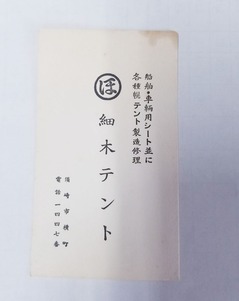 船舶・車輌用シート並に
各種幌テント製造修理
ほ
細木テント
須崎市横町
電話一四四七番